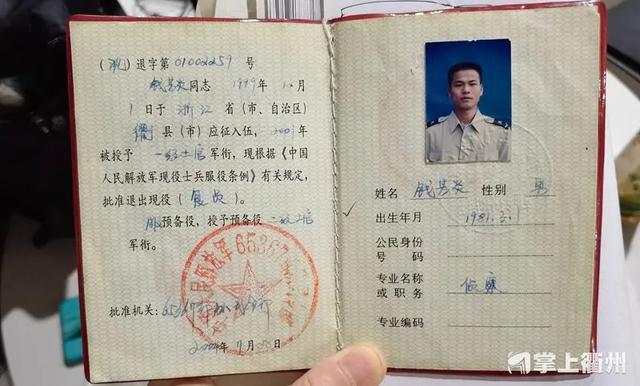 退字第01002259号
同志 1999年12月
1日于浙江省（市、自治区）
衢县（市）应征入伍，2001年
被授予一级士官军衔，现根据《中国
人民解放军现役士兵服役条例》有关规定，
批准退出现役（复员）
服预备役，授予预备役
军衔。
批准机关：
2004年11月 日
姓名 性别 男
出生年月 1981.2.1
公民身份
号码
专业名称
或职务
专业编码
65367
掌上衢州